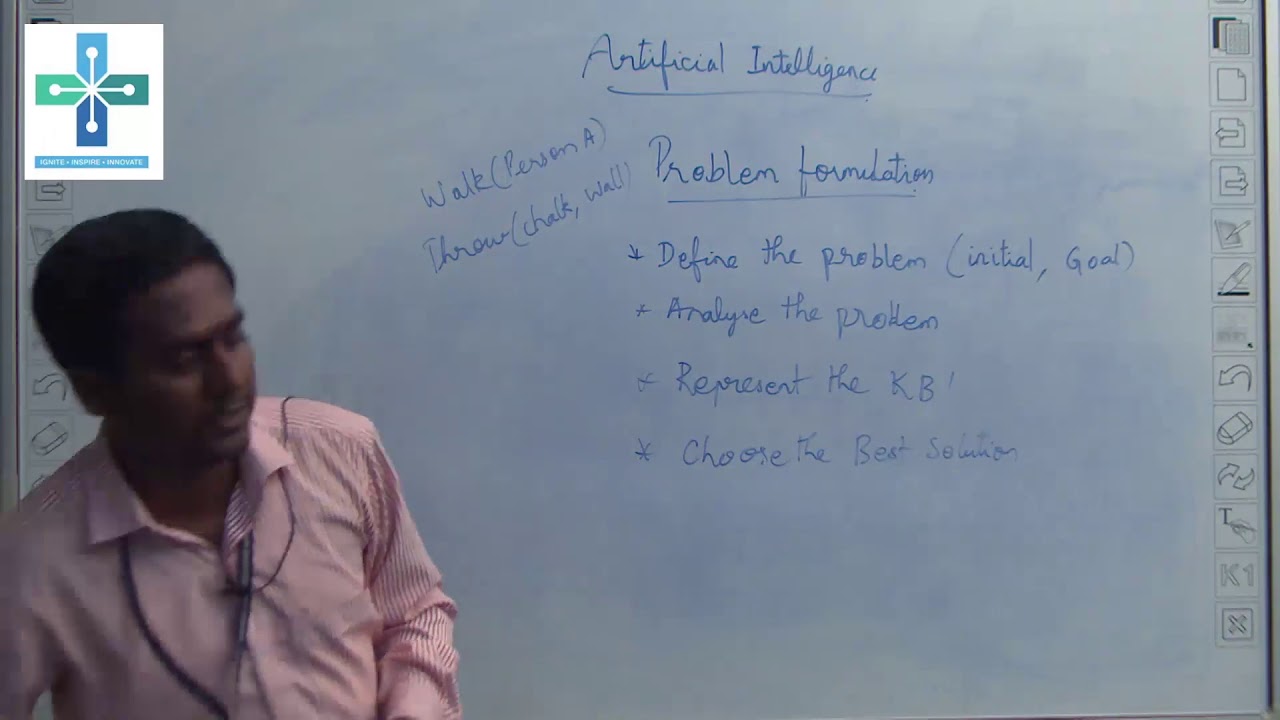 IGNITE • INSPIRE • INNOVATE
Artificial Intelligence
Walk(Person A)
Throw(chalk, wall)
Problem formulation
* Define the problem (initial, Goal)
* Analyse the problem
* Represent the KB'
* Choose the Best Solution
T
K1